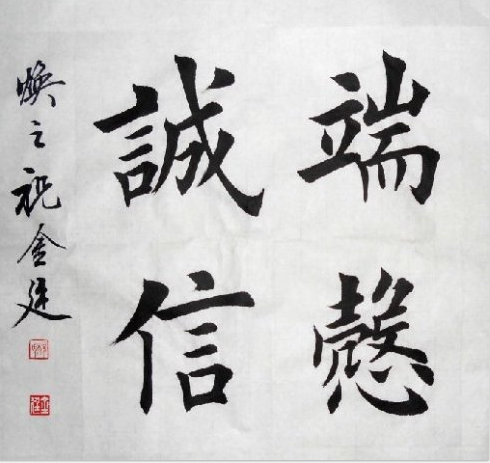 端慤
誠信
煥之祝金廷